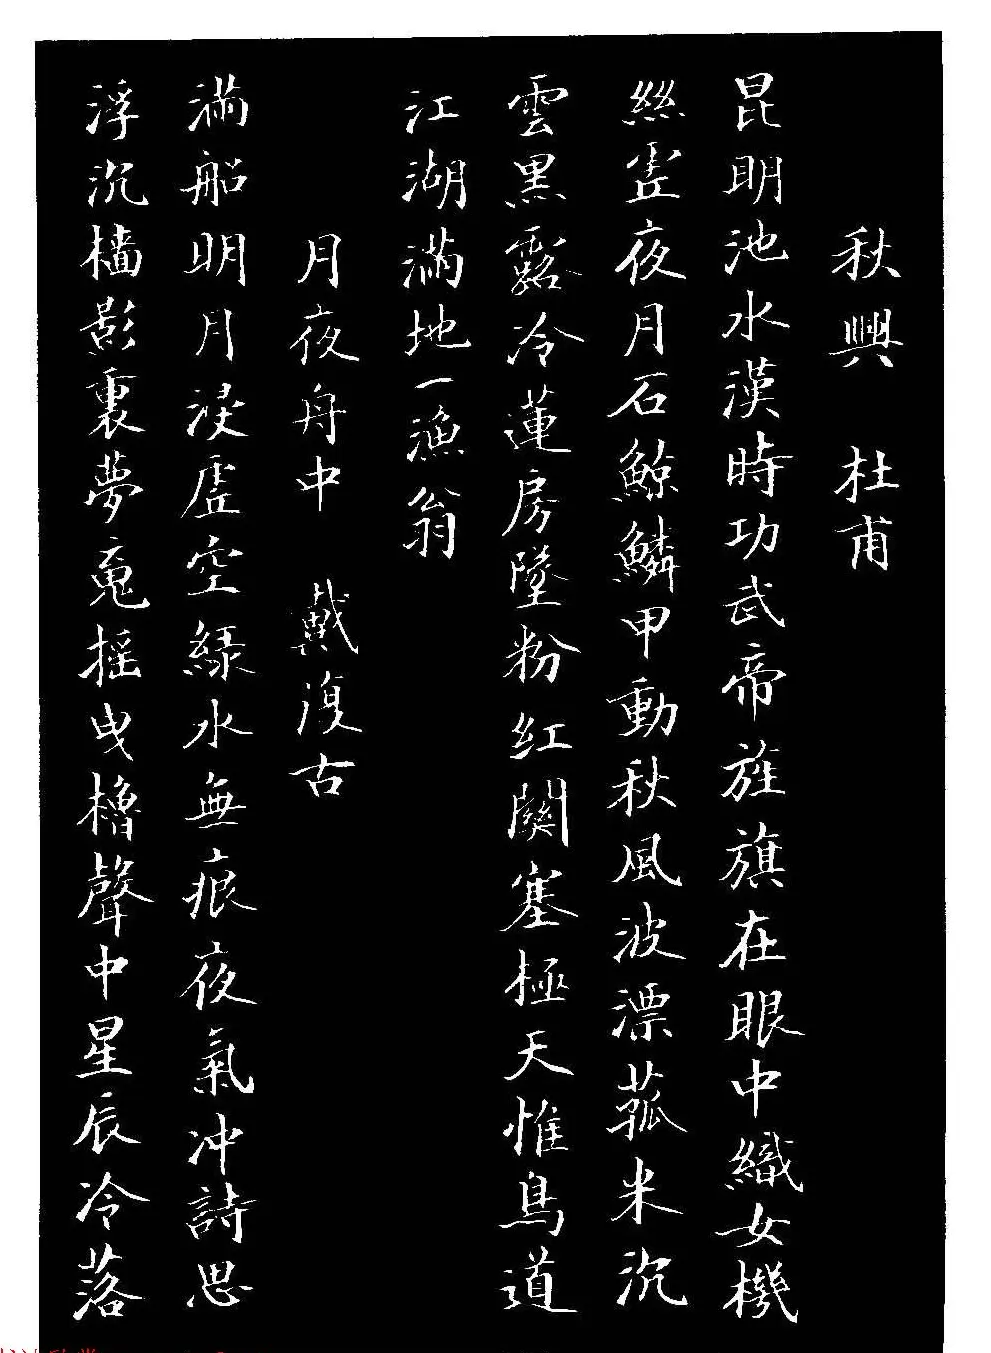 秋興 杜甫
昆明池水漢時功武帝旌旗在眼中織女機
絲虛夜月石鯨鱗甲動秋風波漂菰米沉
雲黑露冷蓮房墜粉紅關塞極天惟鳥道
江湖滿地一漁翁
月夜舟中 戴復古
滿船明月浸虛空綠水無痕夜氣冲詩思
浮沉檣影裏夢魂搖曳櫓聲中星辰冷落